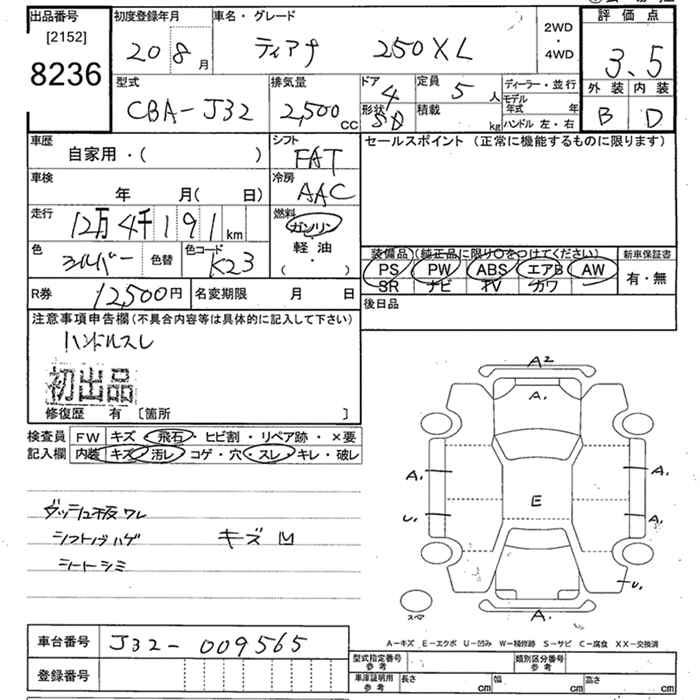 出品番号
[2152]
8236
初度登録年月
20 8 月
車名・グレード
ティアナ 250XL
2WD
・
4WD
評価点
3.5
外装 内装
B D
型式
CBA-J32
排気量
2,500 cc
ドア 4
形状 SD
定員 5 人
積載 kg
ディーラー・並行
モデル年式 年
ハンドル 左・右
車歴
自家用・( )
シフト
FAT
セールスポイント (正常に機能するものに限ります)
車検
年 月( 日)
冷房
AAC
走行
12万4千191 km
燃料
ガソリン
軽油
( ・ )
色
シルバー
色替
色コード
K23
装備品 (純正品に限り○をつけてください)
PS PW ABS エアB AW
SR ナビ TV カワ
新車保証書
有・無
R券 12,500円
名変期限 月 日
後日品
注意事項申告欄 (不具合内容等は具体的に記入して下さい)
ハンドルスレ
初出品
修復歴 有 [箇所 ]
検査員
記入欄
FW キズ・飛石・ヒビ割・リペア跡・×要
内装 キズ・汚レ・コゲ・穴・スレ・キレ・破レ
ダッシュ板ワレ
シフトノブハゲ キズ凹
シートシミ
A2
A.
A. A.
E
U. A.
U.
A.
スペア
A-キズ E-エクボ U-凹み W-補修跡 S-サビ C-腐食 XX-交換済
車台番号 J32-009565
登録番号
型式指定番号
参考
類別区分番号
参考
車庫証明用
参考
長さ cm 幅 cm 高さ cm